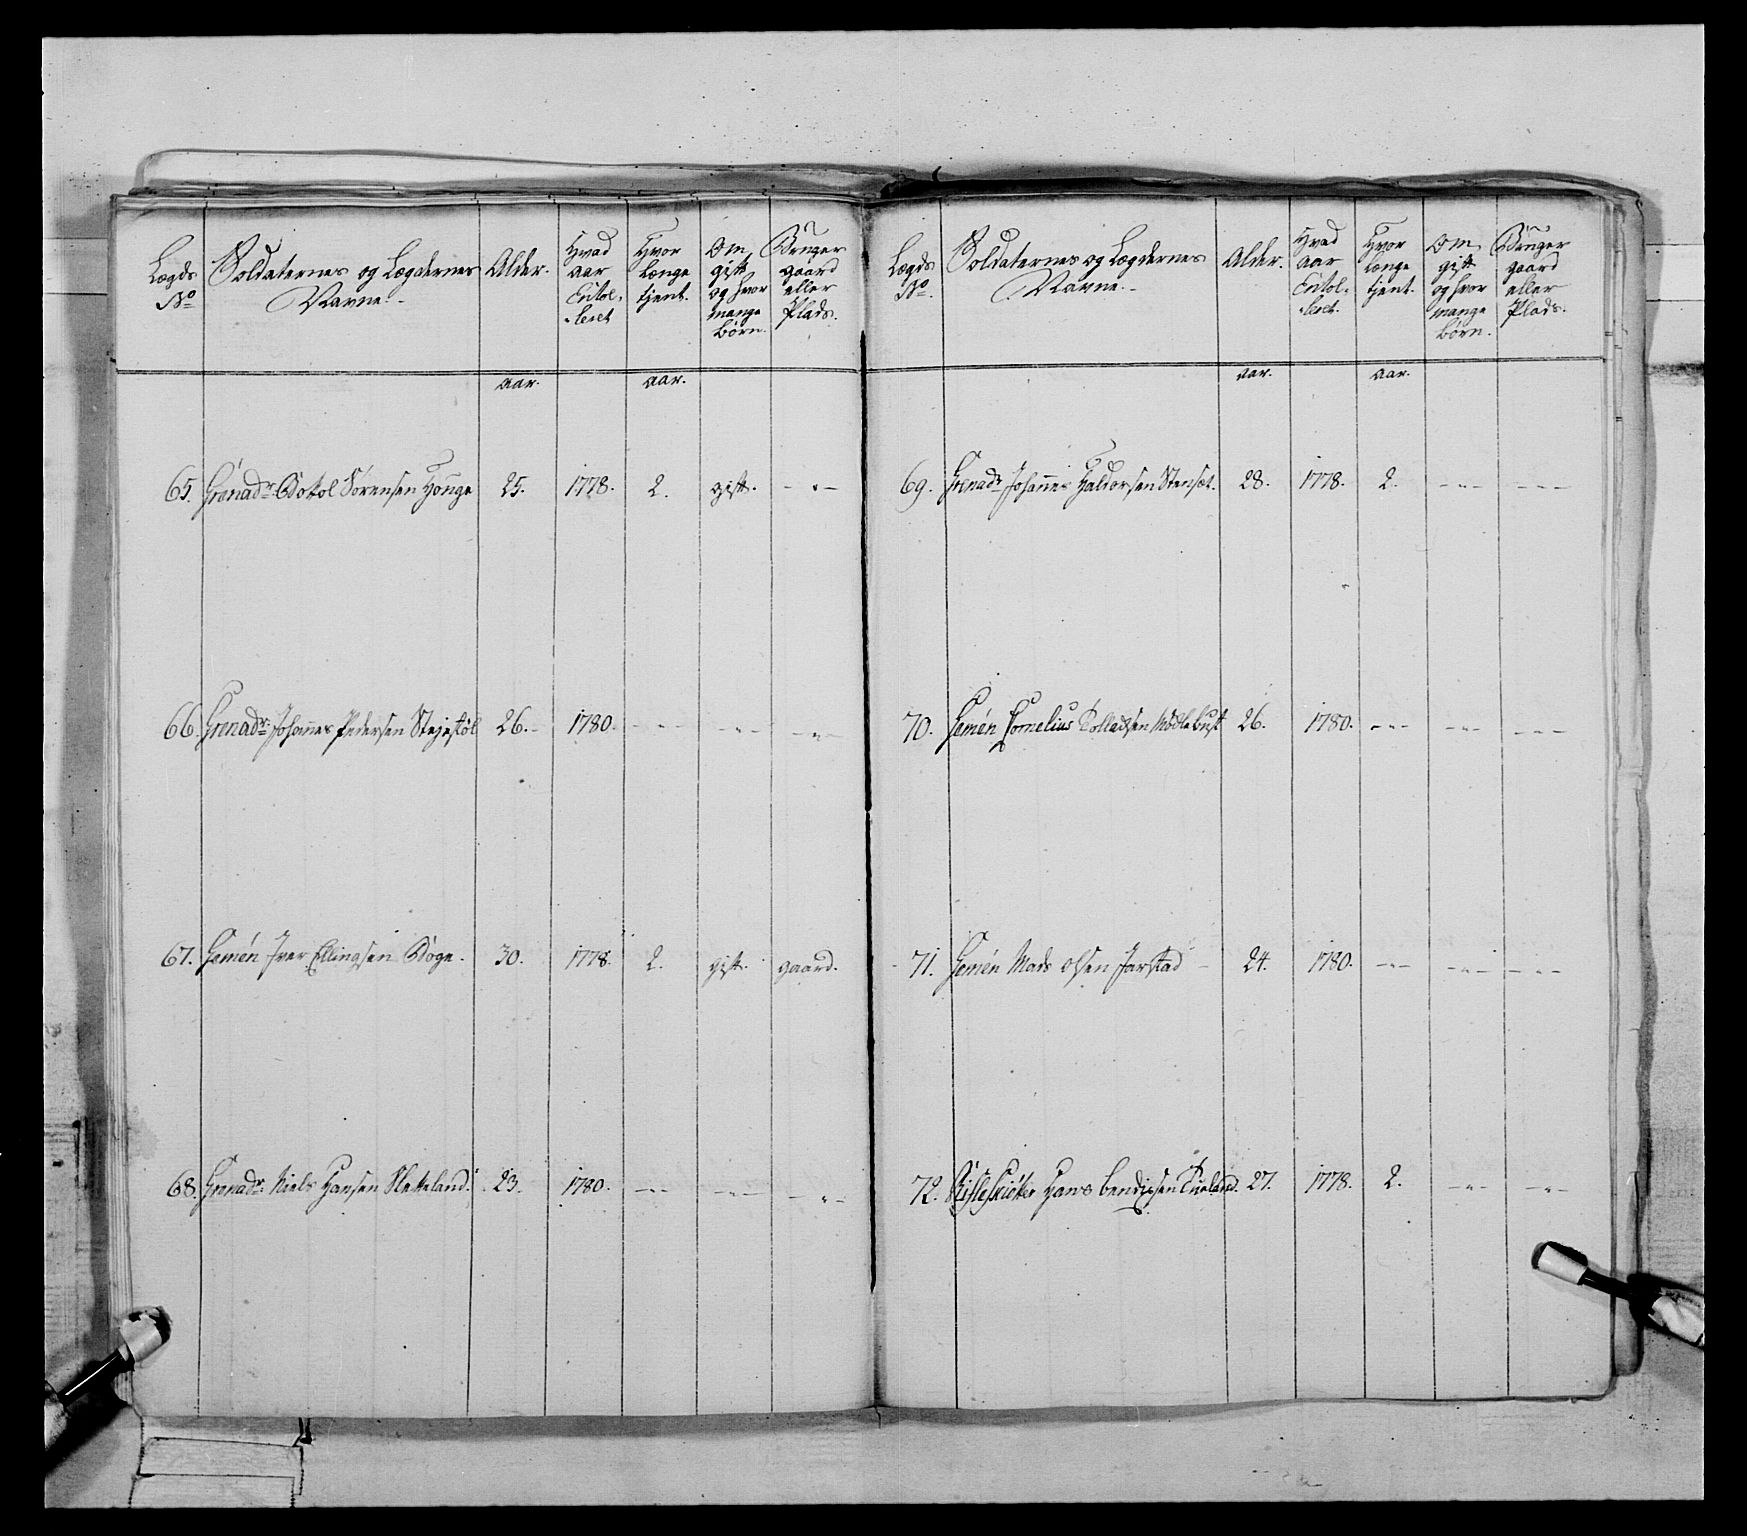 Lægds No | Soldaternes og Lægdernes Navne. | Alder. | Hvad aar Enrolleret | Hvor længe tjent. | Om gift og hvor mange børn. | Bruger gaard eller Plads.
aar. | aar.
65. Grenadr Botol Sørensen Hønge 25. 1778. 2. gift. - - -
66. Grenadr Johannes Pedersen 26. 1780. - - - - - - - - -
67. Gemén Iver Ellingsen Bøge. 30. 1778. 2. gift. gaard.
68. Grenadr Niels Hansen Sletteland. 23. 1780. - - - - - - - - -
Lægds No. | Soldaternes og Lægdernes Navne. | Alder. | Hvad aar Enrolleret. | Hvor længe tjent. | Om gift og hvor mange børn. | Bruger gaard eller Plads.
aar. | aar.
69. Grenadr Johannes Haldorsen Stenset. 28. 1778. 2. - - - - - -
70. Gemén Cornelius Colladsen 26. 1780. - - - - - - - - -
71. Gemén Mads Olsen Jarstad 24. 1780. - - - - - - - - -
72. Hans bendixsen 27. 1778. 2. - - - - - -